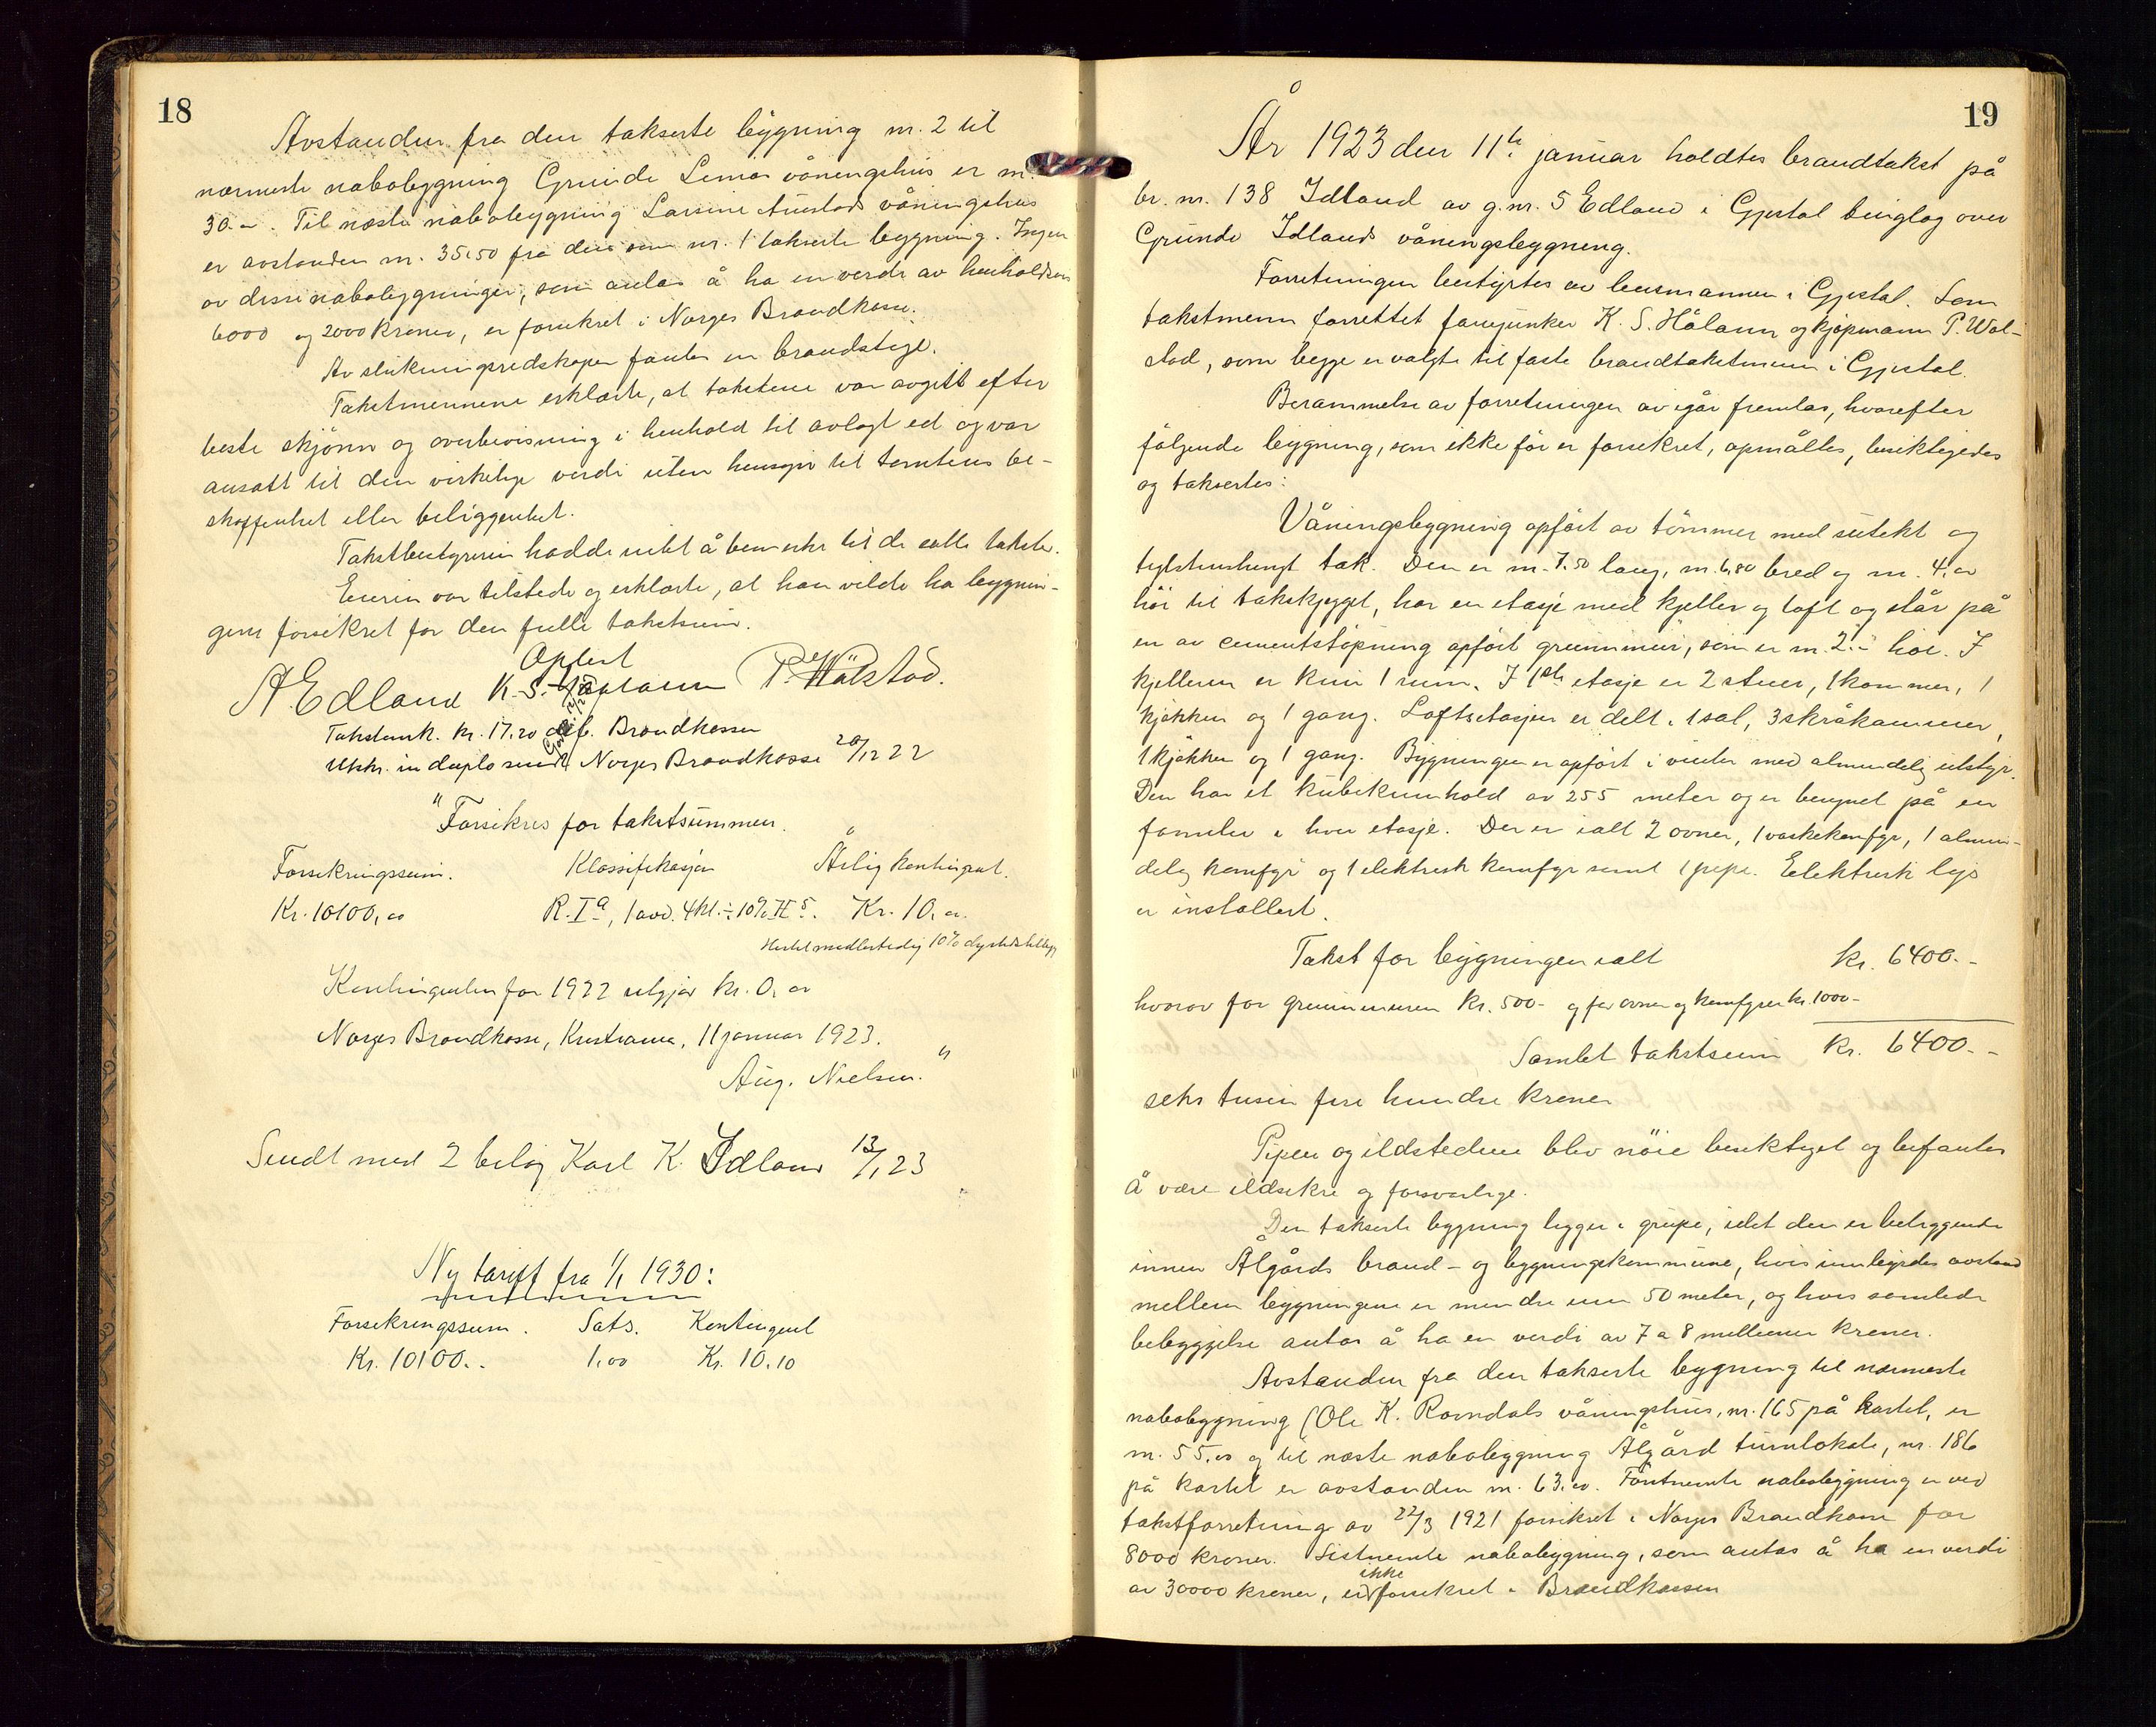 18
Avstanden fra den takserte bygning nr. 2 til
nærmeste nabobygning Grunde Limas våningshus er m.
30.00. Til næste nabobygning Larsine Austads våningshus
er avstanden m. 35,50 fra den som nr. 1 takserte bygning. Ingen
av disse nabobygninger, som antas å ha en verdi av henholdsvis
6000 og 2000 kroner, er forsikret i Norges Brandkasse.
Av slukningsredskaper fantes en brandstige.
Takstmennene erklærte, at takstene var avgitt efter
beste skjønn og overbevisning i henhold til avlagt ed og var
ansatt til den virkelige verdi uten hensyn til tomtens be-
skaffenhet eller beliggenhet.
Takstbestyreren hadde intet å bemerke til de satte takster.
Eieren var tilstede og erklærte, at han vilde ha bygnin-
gene forsikret for den fulle takstsum.
Oplest
A. Edland K. S. Håland P. Wålstad.
Takstomk. kr. 17,20 Brandkassen
Utskr. in duplo sendt Norges Brandkasse 20/12 22
"Forsikres for takstsummen.
Forsikringssum. Klassifikasjon Årlig kontingent.
Kr. 10100,00 R. I a, 1 avd. 4 kl. ÷ 10% H 5. Kr. 10,00
Hertil midlertidig 10% dyrtidstillegg
Kontingenten for 1922 utgjør kr. 0,00
Norges Brandkasse, Kristiania, 11 januar 1923.
Aug. Nielsen."
Sendt med 2 bilag Karl K. Idland 13/1 23
Ny tariff fra 1/1 1930:
Forsikringssum. Sats. Kontingent
Kr. 10100.- 1,00 Kr. 10.10
19
År 1923 den 11te januar holdtes brandtakst på
br. nr. 138 Idland av g.nr. 5 Edland i Gjestal tinglag over
Grunde Idlands våningsbygning.
Forretningen bestyrtes av lensmannen i Gjestal. Som
takstmenn forrettet fanejunker K. S. Håland og kjøpmann P. Wål-
stad, som begge er valgte til faste brandtakstmenn i Gjestal.
Berammelse av forretningen av igår fremlas, hvorefter
følgende bygning, som ikke før er forsikret, opmåltes, besiktigedes
og taksertes:
Våningsbygning opført av tømmer med sutekt og
teglstenshengt tak. Den er m. 7.50 lang, m. 6,80 bred og m. 4,00
høi til takskjegget, har en etasje med kjeller og loft og står på
en av cementstøpning opført grunnmur, som er m. 2.- høi. I
kjelleren er kun 1 rum. I 1ste etasje er 2 stuer, 1 kammer, 1
kjøkken og 1 gang. Loftsetasjen er delt i 1 sal, 3 skråkammer,
1 kjøkken og 1 gang. Bygningen er opført i vinter med almindelig utstyr.
Den har et kubikinnhold av 255 meter og er beregnet på en
familie i hver etasje. Der er ialt 2 ovner, 1 vaskekomfyr, 1 almin-
delig komfyr og 1 elektrisk komfyr samt 1 pipe. Elektrisk lys
er installert.
Takst for bygningen ialt kr. 6400.-
hvorav for grunnmuren kr. 500- og for ovner og komfyrer kr. 1000-
Samlet takstsum kr. 6400.-
seks tusen fire hundre kroner
Pipen og ildstedene blev nøie besiktiget og befantes
å være ildsikre og forsvarlige.
Den takserte bygning ligger i gruppe, idet den er beliggende
innen Ålgårds brand- og bygningskommune, hvis innbyrdes avstand
mellem bygningene er mindre enn 50 meter, og hvis samlede
bebyggelse antas å ha en verdi av 7 a 8 millioner kroner.
Avstanden fra den takserte bygning til nærmeste
nabobygning (Ole K. Ramdals våningshus, nr. 165 på kartet, er
m. 55.00 og til næste nabobygning Ålgård turnlokale, nr. 186
på kartet er avstanden m. 63.00. Førstnevnte nabobygning er ved
takstforretning av 22/3 1921 forsikret i Norges Brandkasse for
8000 kroner. Sistnevnte nabobygning, som antas å ha en verdi
av 30000 kroner, er ikke forsikret i Brandkassen